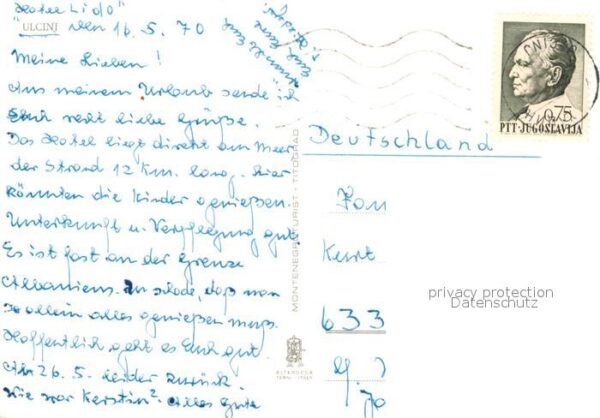 Hotel Lido
ULCINJ den 16.5.70
Meine Lieben!
Aus meinem Urlaub sende ich
Euch recht liebe Grüße.
Das Hotel liegt direkt am Meer
der Strand 12 Km. lang. Hier
könnten die Kinder genießen
Unterkunft u. Verpflegung gut.
Es ist fast an der Grenze
Albaniens. Zu schade, daß man
so allein alles genießen muß.
Hoffentlich geht es Euch gut.
Am 26.5. leider zurück.
Wie war Kerstin? Alles Gute
MONTENEGROTURIST - TITOGRAD
0.75
PTT-JUGOSLAVIJA
Deutschland
Fam
Kurt
633
privacy protection
Datenschutz